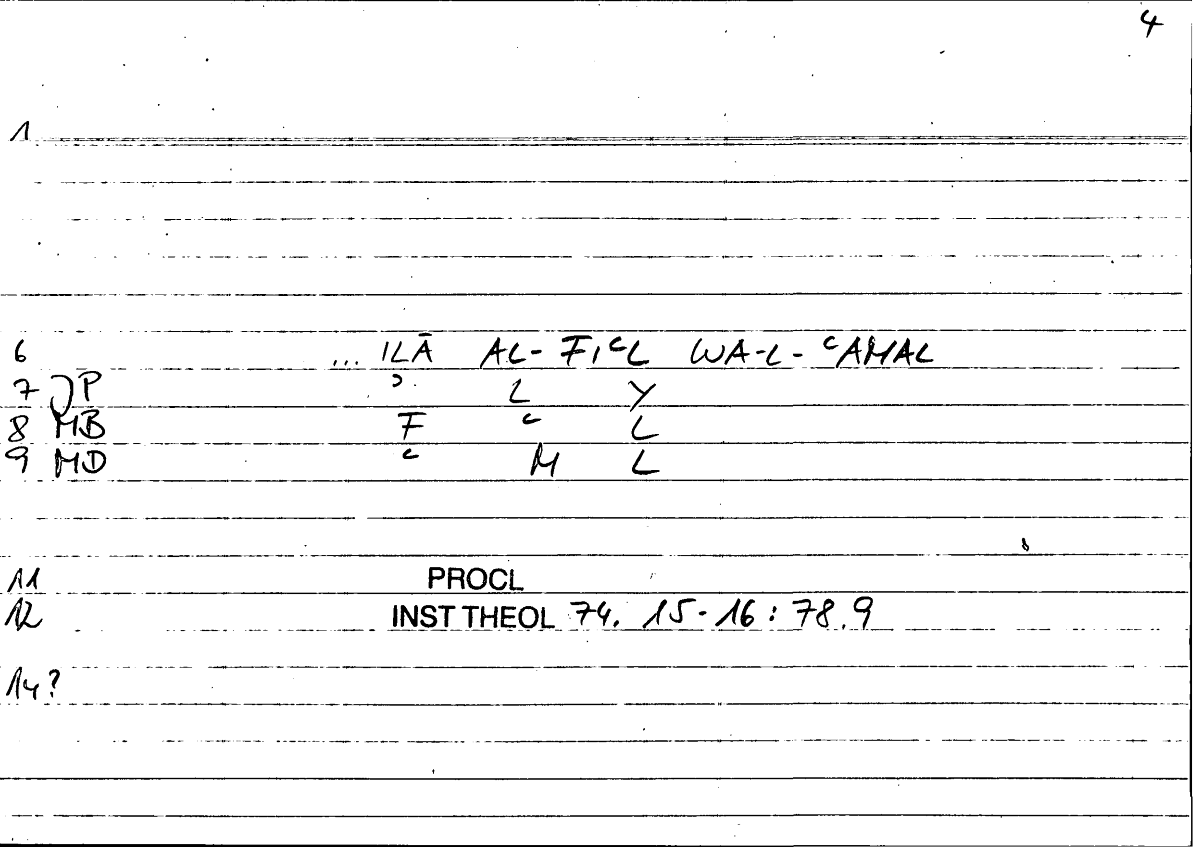 4
1
6 ... ILĀ AL-FIᶜL WA-L-ᶜAMAL
7 JP ᵓ L Y
8 MB F ᶜ L
9 MD ᶜ M L
11 PROCL
12 INST THEOL 74. 15-16 : 78.9
14?